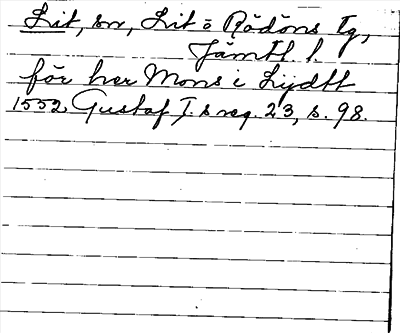 Lit, sn, Lit o Rödöns tg,
Jämtl. l.
för her Mons i Lijdtt
1552. Gustaf I:s reg. 23, s. 98.